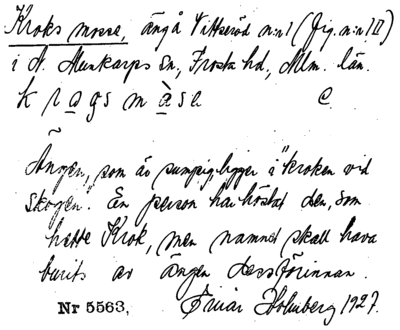 Kroks mosse, äng å Tittseröd n:o 1 (Jfg. n:o 1 II)
i N. Munkarps sn, Frosta hd, Mlm. län.
k r a gs m à s a C.
Ängen, som är sumpig, ligger i "kroken vid
skogen". En person har höstat den, som
hette Krok, men namnet skall hava
burits av ängen dessförinnan.
Nr 5563, Einar Holmberg 1927.